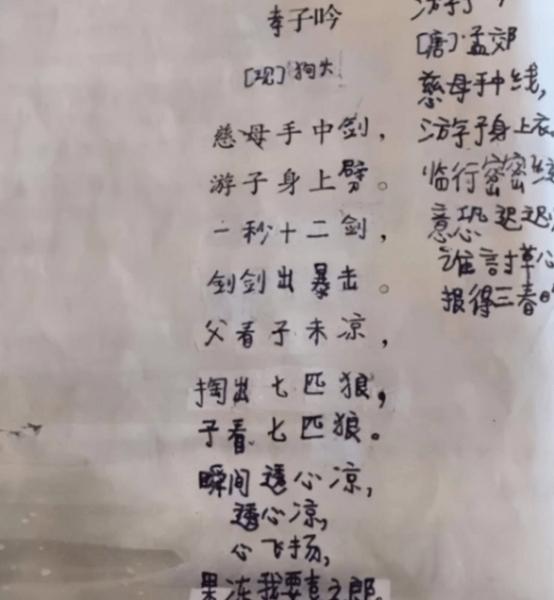 孝子吟
[现]狗大
慈母手中剑，
游子身上劈。
一秒十二剑，
剑剑出暴击。
父看子未凉，
掏出七匹狼，
子看七匹狼。
瞬间透心凉，
透心凉，
心飞扬，
果冻我要喜之郎。
游子
[唐]孟郊
慈母手中线，
游子身上衣
临行密密
意恐迟迟
谁讨草心
报得三春